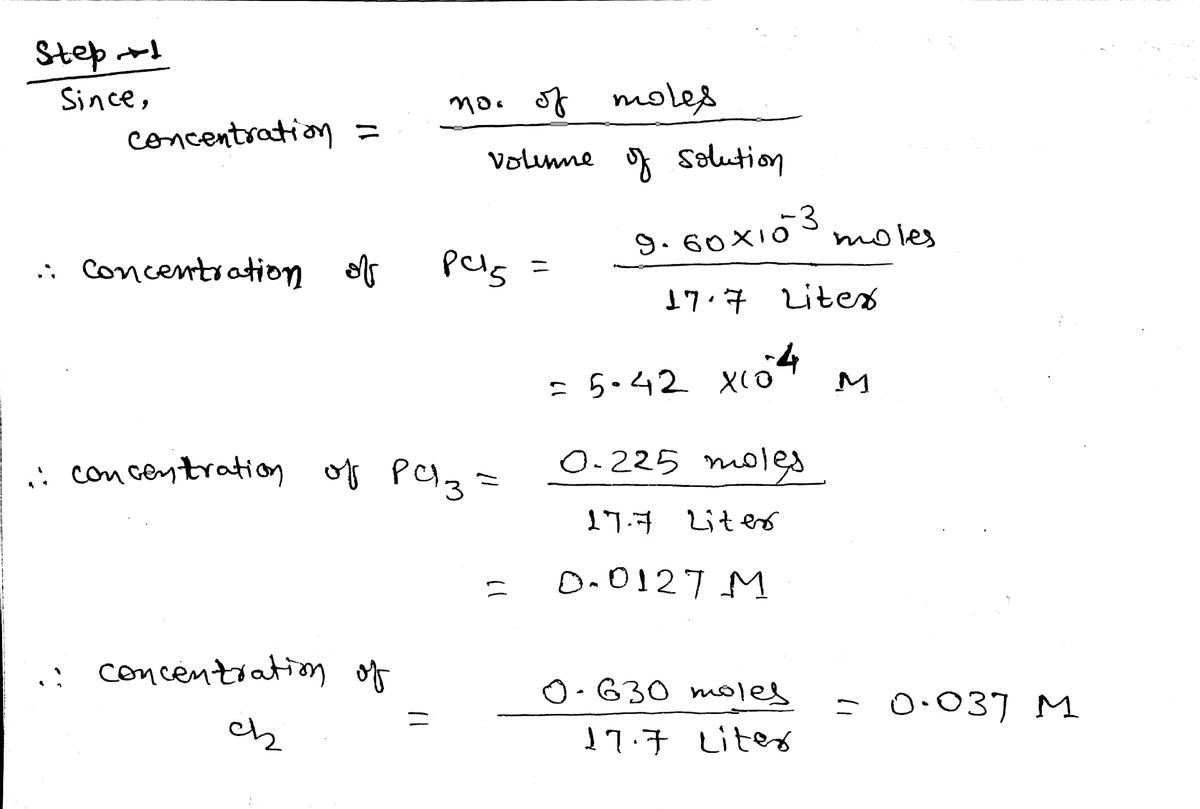 Step → 1
Since,
concentration = no. of moles / volume of solution
∴ concentration of PCl5 = 9.60×10^-3 moles / 17.7 Liter
= 5.42 ×10^-4 M
∴ concentration of PCl3 = 0.225 moles / 17.7 Liter
= 0.0127 M
∴ concentration of Cl2 = 0.630 moles / 17.7 Liter = 0.037 M